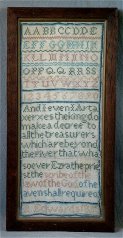 AABBCCDDE
EFFGGHHIJK
KLLMMNNO
OPPQQRRSS
TTUVWXYZ
12345678910
And I even I Arta
xerxes the king do
make a decree to
all the treasurers
which are beyond
the river that wha
soever Ezra the pri
est the scribe of the
law of the God of he
aven shall require of